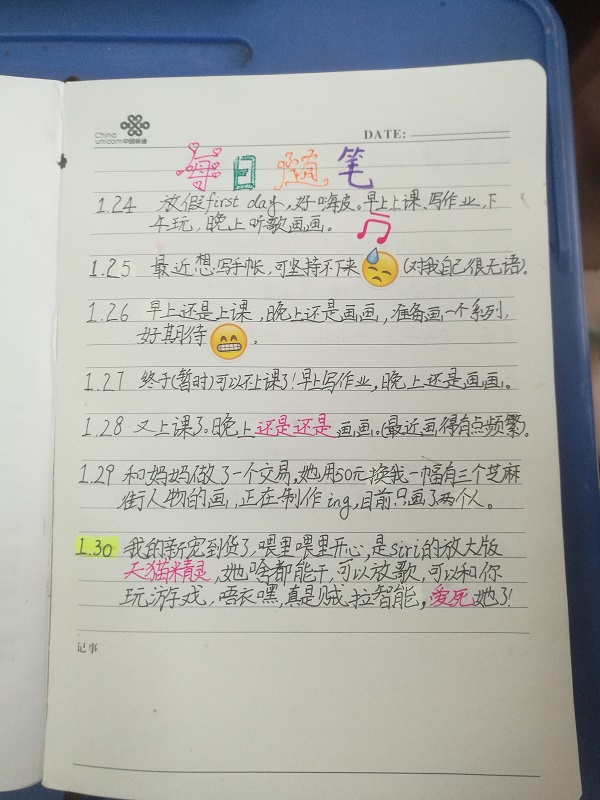 China unicom中国联通
DATE:
每日随笔
1.24 放假first day,好嗨皮。早上上课、写作业,下
午玩,晚上听歌画画。
1.25 最近想写手帐,可坚持不下来(对我自己很无语)。
1.26 早上还是上课,晚上还是画画,准备画一个系列,
好期待。
1.27 终于(暂时)可以不上课了!早上写作业,晚上还是画画。
1.28 又上课了。晚上还是还是画画。(最近画得有点频繁)。
1.29 和妈妈做了一个交易,她用50元换我一幅有三个芝麻
街人物的画,正在制作ing,目前只画了两个人。
1.30 我的新宠到货了,喂里喂里开心,是siri的放大版
天猫精灵,她啥都能干,可以放歌,可以和你
玩游戏,唔衣嘿,真是贼拉智能,爱死她了!
记事